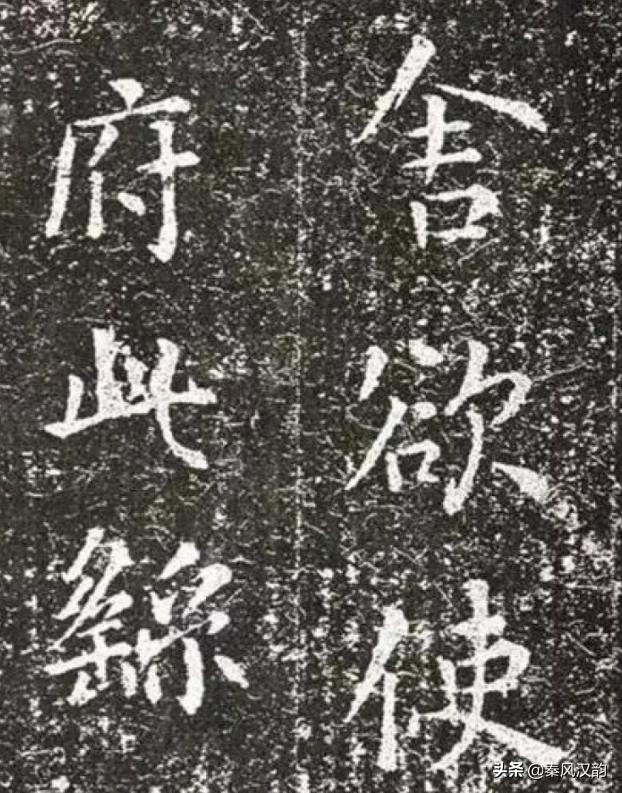 舍欲使
府此繇
头条 @秦风汉韵